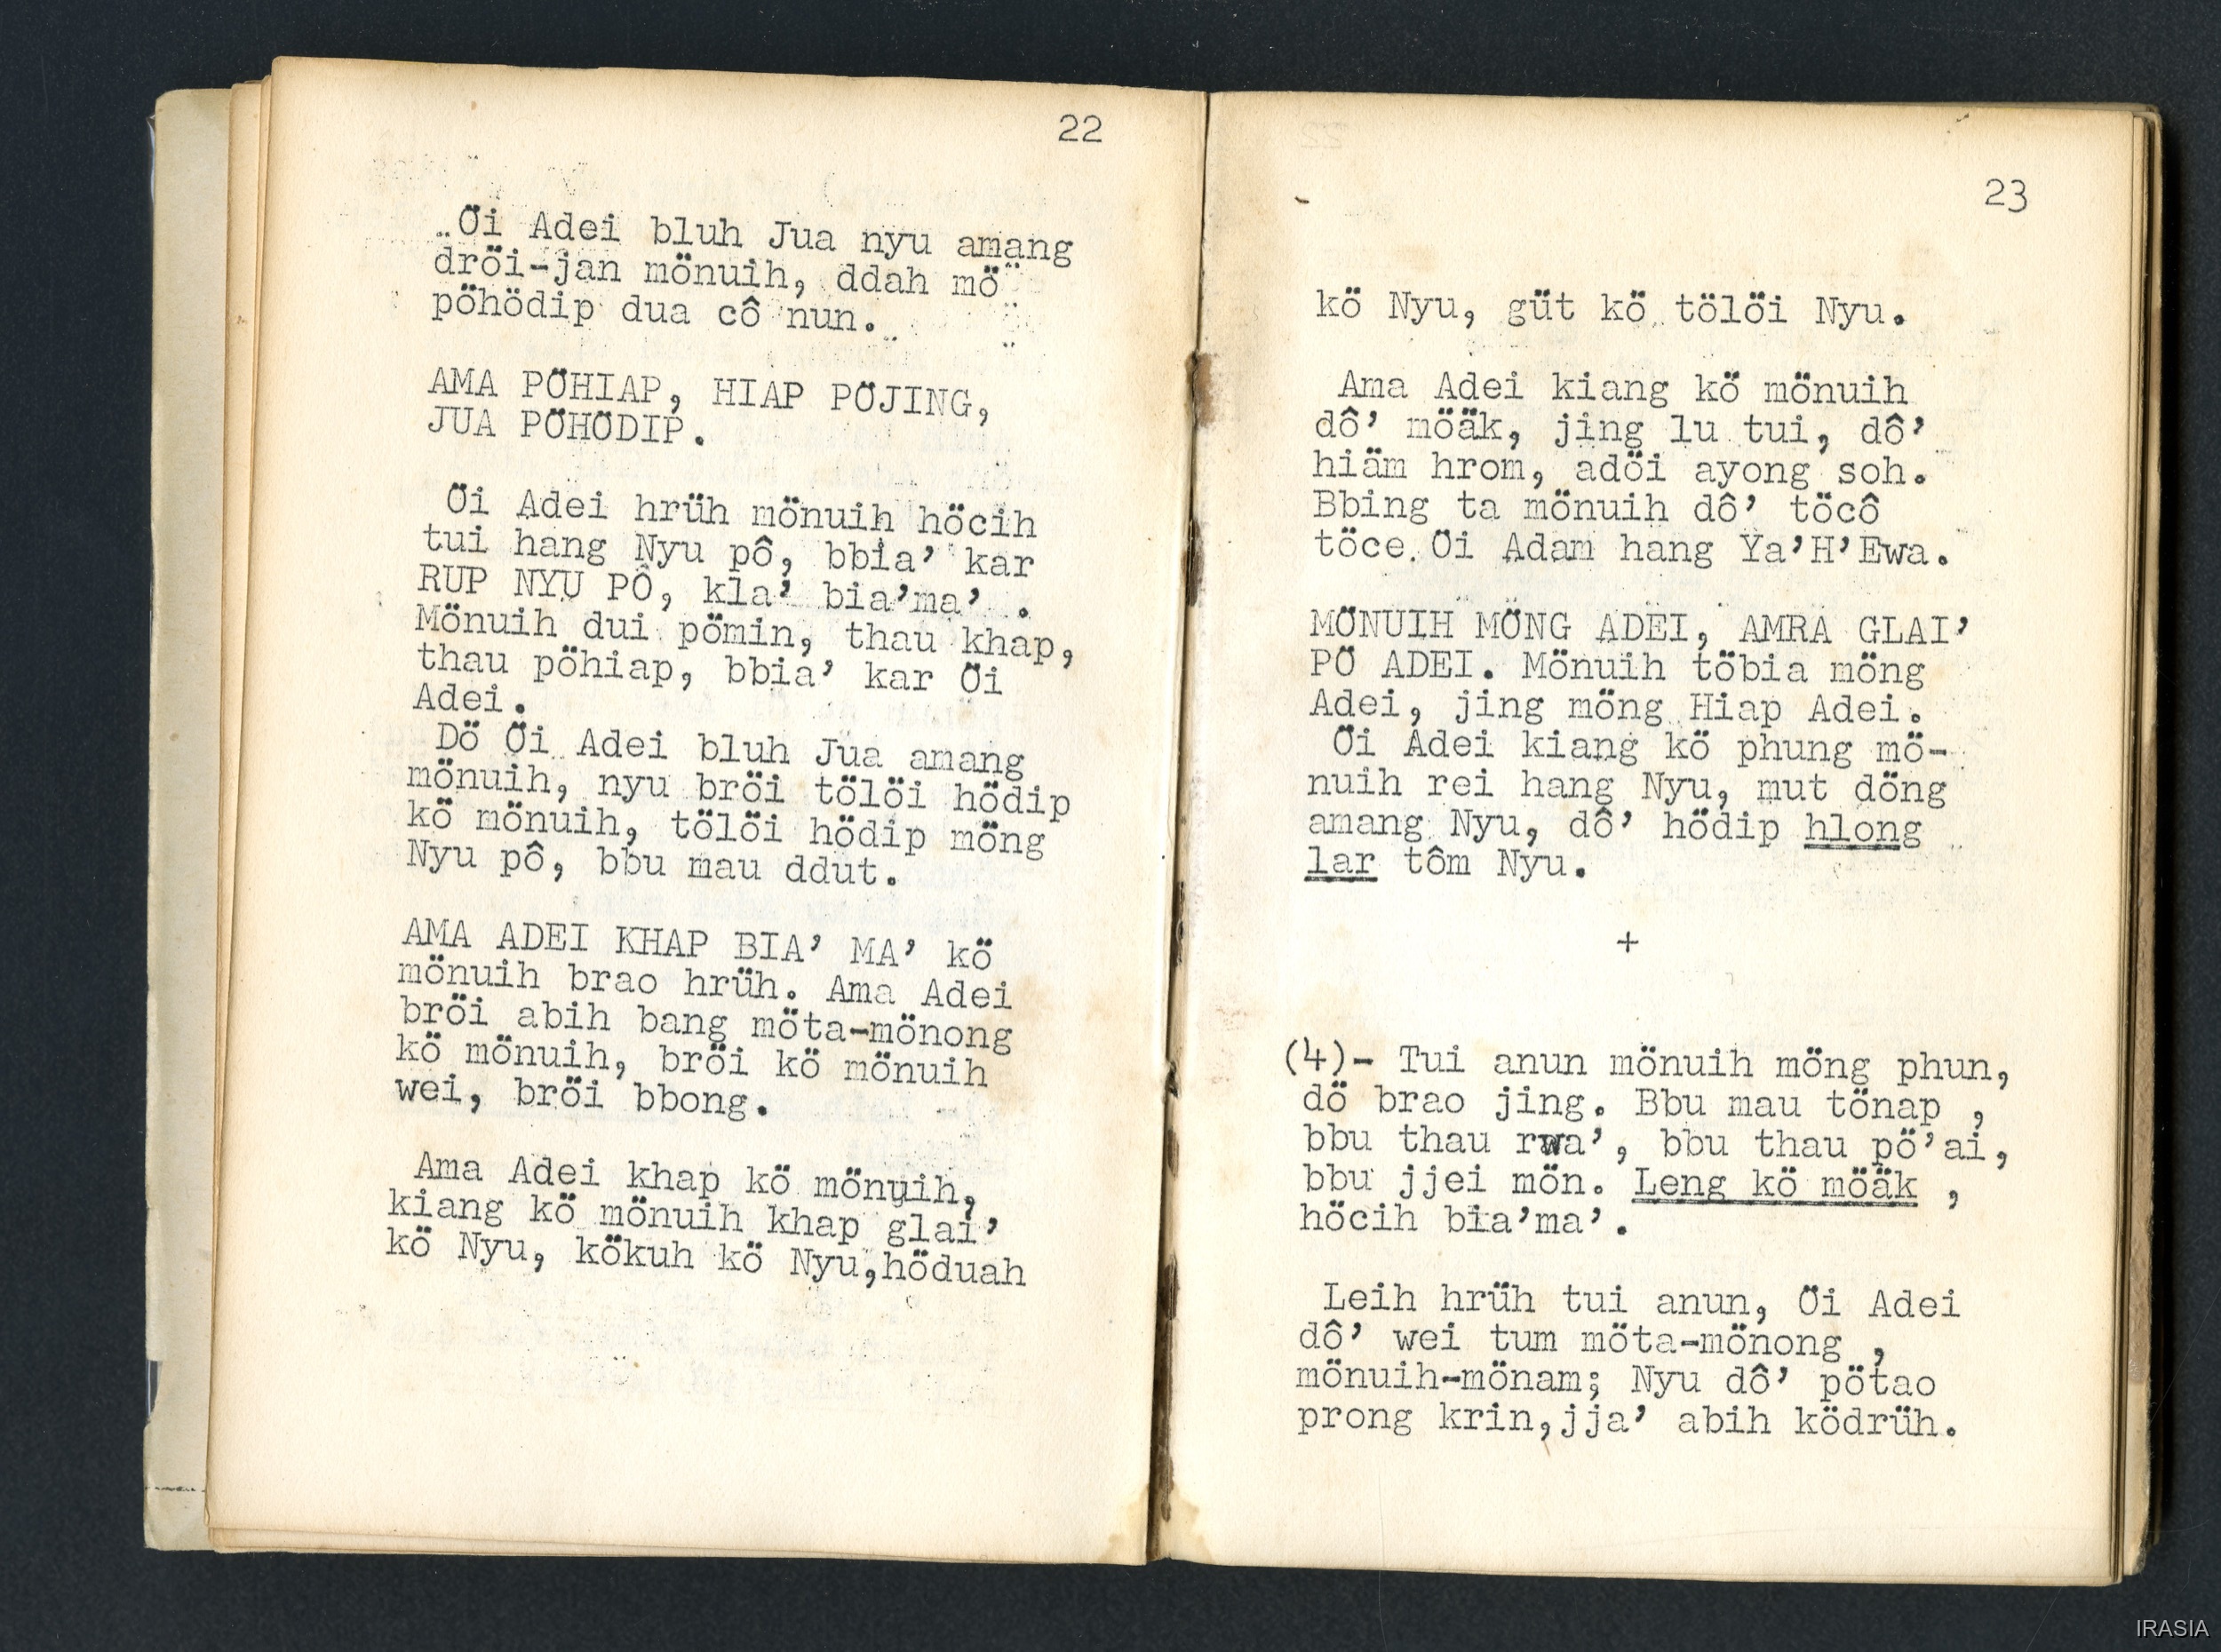 22
Öi Adei bluh Jua nyu amang
dröi-jan mönuih, ddah mö
pöhödip dua cô nun.
AMA PÖHIAP, HIAP PÖJING,
JUA PÖHÖDIP.
Öi Adei hrüh mönuih höcih
tui hang Nyu pô, bbia’ kar
RUP NYU PÔ, kla’ bia’ma’ .
Mönuih dui pömin, thau khap,
thau pöhiap, bbia’ kar Öi
Adei.
Dö Öi Adei bluh Jua amang
mönuih, nyu bröi tölöi hödip
kö mönuih, tölöi hödip möng
Nyu pô, bbu mau ddut.
AMA ADEI KHAP BIA’ MA’ kö
mönuih brao hrüh. Ama Adei
bröi abih bang möta-mönong
kö mönuih, bröi kö mönuih
wei, bröi bbong.
Ama Adei khap kö mönuih,
kiang kö mönuih khap glai’
kö Nyu, kökuh kö Nyu,höduah
23
kö Nyu, güt kö tölöi Nyu.
Ama Adei kiang kö mönuih
dô’ möäk, jing lu tui, dô’
hiäm hrom, adöi ayong soh.
Bbing ta mönuih dô’ töcô
töce Öi Adam hang Ya’H’Ewa.
MÖNUIH MÖNG ADEI, AMRA GLAI’
PÖ ADEI. Mönuih töbia möng
Adei, jing möng Hiap Adei.
Öi Adei kiang kö phung mö-
nuih rei hang Nyu, mut döng
amang Nyu, dô’ hödip hlong
lar tôm Nyu.
+
(4)- Tui anun mönuih möng phun,
dö brao jing. Bbu mau tönap ,
bbu thau rwa’, bbu thau pö’ai,
bbu jjei mön. Leng kö möäk ,
höcih bia’ma’.
Leih hrüh tui anun, Öi Adei
dô’ wei tum möta-mönong ,
mönuih-mönam; Nyu dô’ pötao
prong krin,jja’ abih ködrüh.
IRASIA